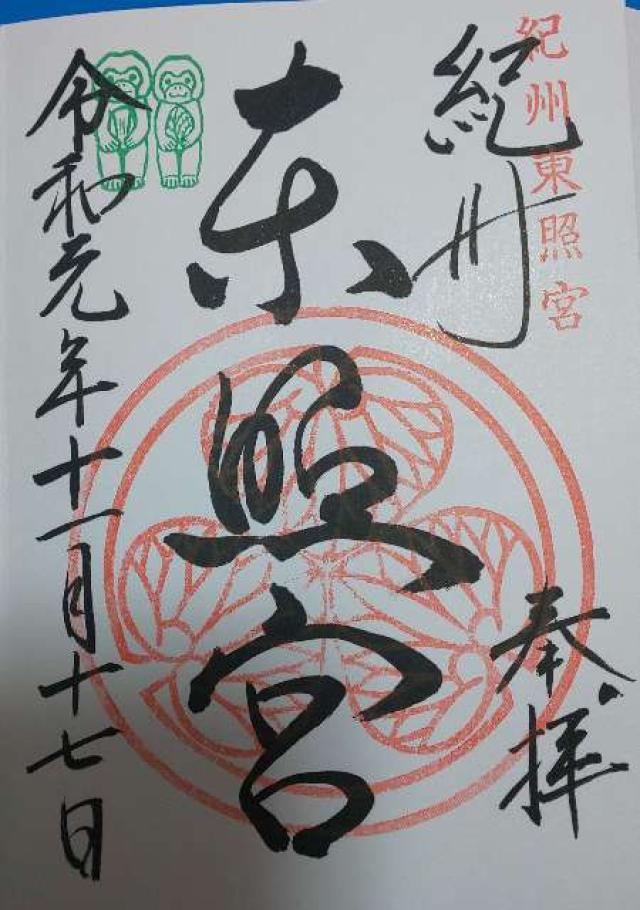 紀州東照宮
紀州
奉拝
東照宮
令和元年十一月十七日